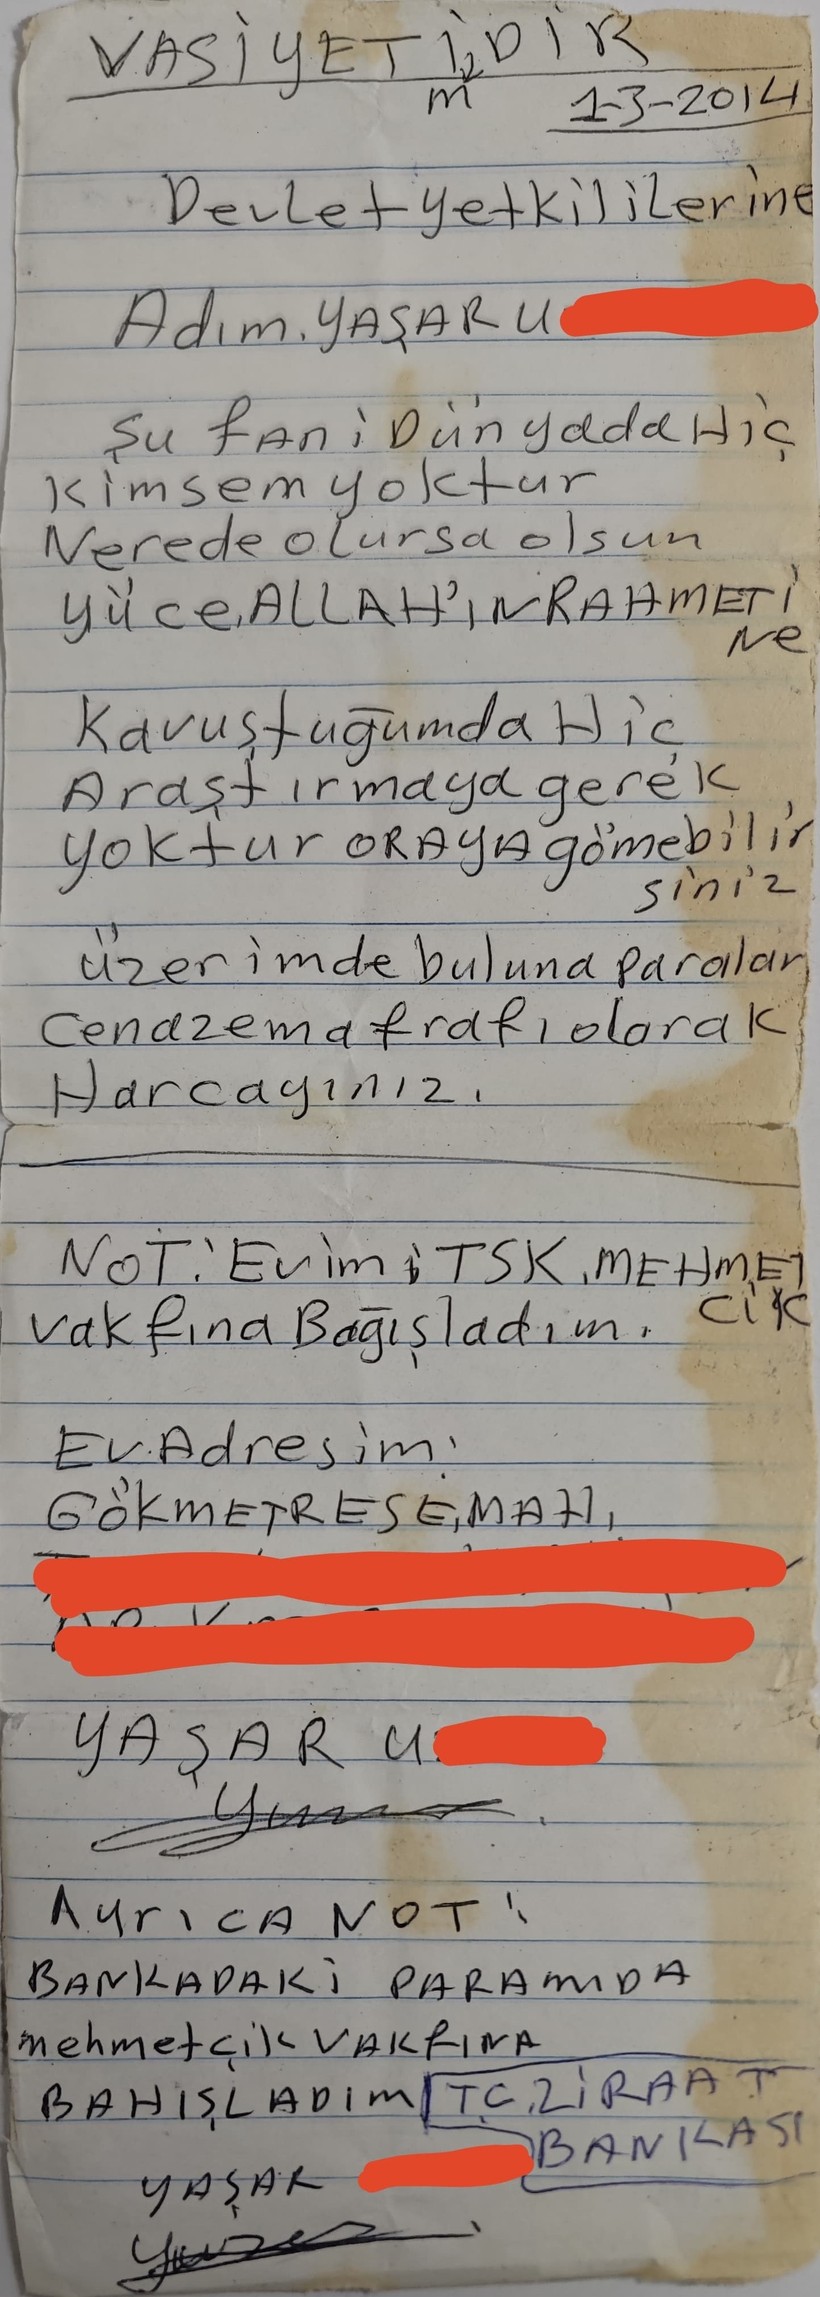 VASİYETİDİR
m
1-3-2014
Devlet yetkililerine
Adım. YAŞAR U
Şu fAni Dünyada Hiç
kimsem yoktur
Nerede olursa olsun
yüce, ALLAH'IN RAHMETİ
Ne
Kavuştuğumda Hiç
Araştırmaya gerek
yoktur ORAYA gömebilir
siniz
üzerimde buluna paralar
Cenazema frafı olarak
Harcayınız.
NOT: Evimi TSK. MEHMET
CİK
vakfına Bağışladım.
Ev. Adresim:
GÖKMETRESE, MAH,
YAŞAR U
AyrıCA NOT:
BANKADAKİ PARAMIDA
mehmetçik VAKfINA
BAHIŞLADIM T.C. ZİRAAT
BANKASI
YAŞAR